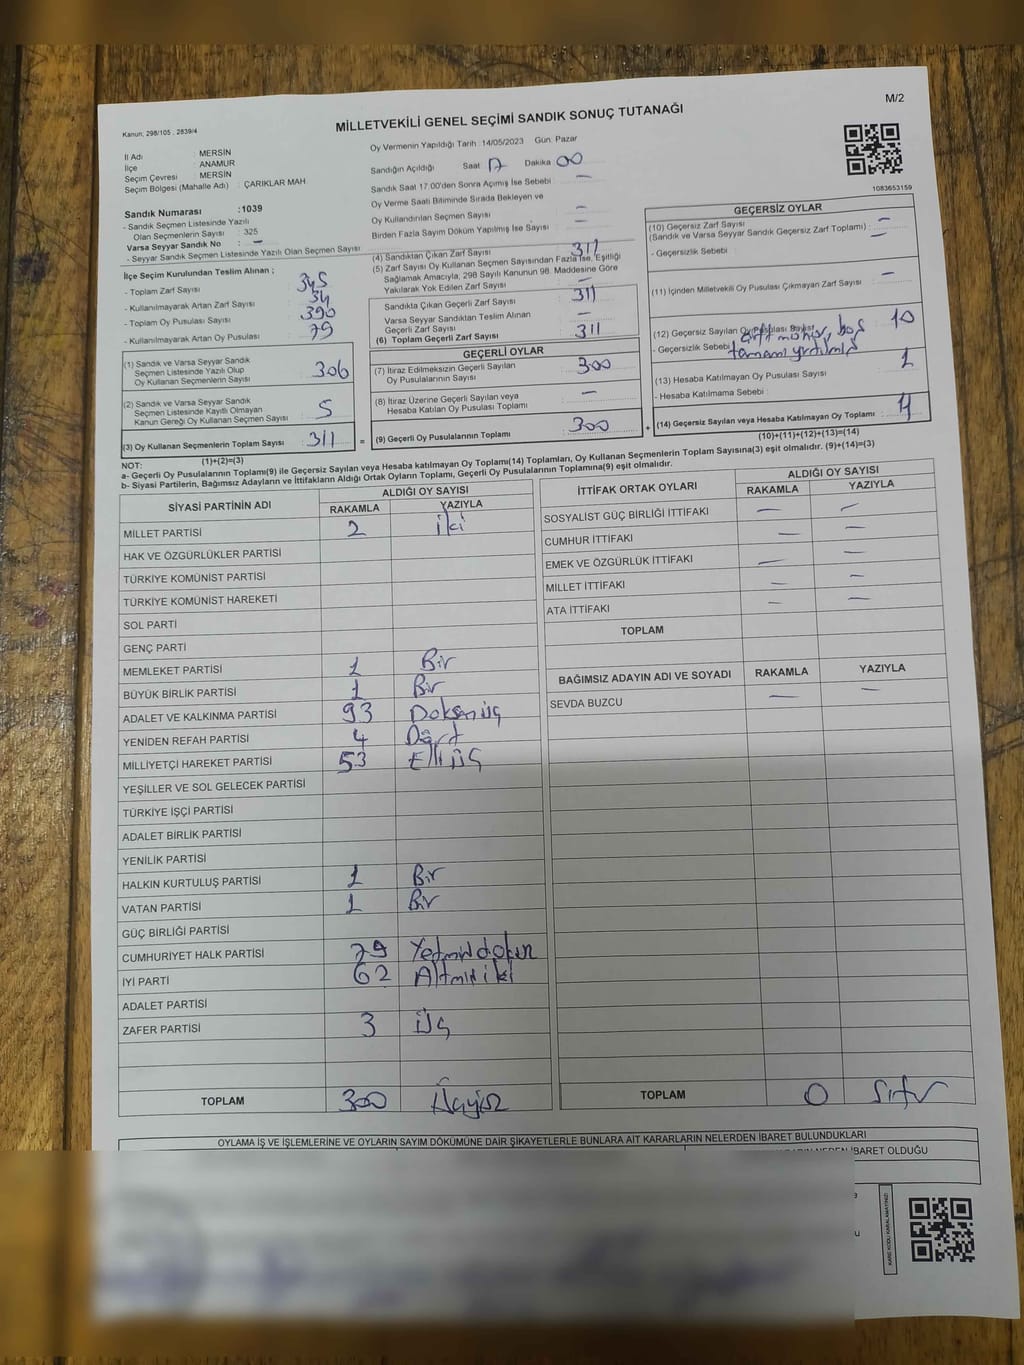 M/2
Kanun; 298/105 , 2839/4
MİLLETVEKİLİ GENEL SEÇİMİ SANDIK SONUÇ TUTANAĞI
İl Adı : MERSİN
İlçe : ANAMUR
Seçim Çevresi : MERSİN
Seçim Bölgesi (Mahalle Adı) : ÇARIKLAR MAH
Sandık Numarası : 1039
- Sandık Seçmen Listesinde Yazılı
Olan Seçmenlerin Sayısı : 325
Varsa Seyyar Sandık No : –
- Seyyar Sandık Seçmen Listesinde Yazılı Olan Seçmen Sayısı
Oy Vermenin Yapıldığı Tarih :14/05/2023 Gün: Pazar
Sandığın Açıldığı Saat 17 Dakika 00
Sandık Saat 17:00'den Sonra Açımış İse Sebebi : –
Oy Verme Saati Bitiminde Sırada Bekleyen ve
Oy Kullandırılan Seçmen Sayısı : –
Birden Fazla Sayım Döküm Yapılmış İse Sayısı : –
1083653159
İlçe Seçim Kurulundan Teslim Alınan ;
- Toplam Zarf Sayısı : 345
- Kullanılmayarak Artan Zarf Sayısı : 34
- Toplam Oy Pusulası Sayısı : 390
- Kullanılmayarak Artan Oy Pusulası : 79
(1) Sandık ve Varsa Seyyar Sandık
Seçmen Listesinde Yazılı Olup
Oy Kullanan Seçmenlerin Sayısı : 306
(2) Sandık ve Varsa Seyyar Sandık
Seçmen Listesinde Kayıtlı Olmayan
Kanun Gereği Oy Kullanan Seçmen Sayısı : 5
(3) Oy Kullanan Seçmenlerin Toplam Sayısı : 311
(1)+(2)=(3)
(4) Sandıktan Çıkan Zarf Sayısı : 311
(5) Zarf Sayısı Oy Kullanan Seçmen Sayısından Fazla İse, Eşitliği
Sağlamak Amacıyla; 298 Sayılı Kanunun 98. Maddesine Göre
Yakılarak Yok Edilen Zarf Sayısı : –
Sandıkta Çıkan Geçerli Zarf Sayısı : 311
Varsa Seyyar Sandıktan Teslim Alınan
Geçerli Zarf Sayısı : –
(6) Toplam Geçerli Zarf Sayısı : 311
GEÇERLİ OYLAR
(7) İtiraz Edilmeksizin Geçerli Sayılan
Oy Pusulalarının Sayısı : 300
(8) İtiraz Üzerine Geçerli Sayılan veya
Hesaba Katılan Oy Pusulası Toplamı : –
= (9) Geçerli Oy Pusulalarının Toplamı : 300
GEÇERSİZ OYLAR
(10) Geçersiz Zarf Sayısı : –
(Sandık ve Varsa Seyyar Sandık Geçersiz Zarf Toplamı) : –
- Geçersizlik Sebebi :
(11) İçinden Milletvekili Oy Pusulası Çıkmayan Zarf Sayısı : –
(12) Geçersiz Sayılan Oy Pusulası Sayısı : 10
- Geçersizlik Sebebi : çift mühür, boş
tamamı yırtılmış
(13) Hesaba Katılmayan Oy Pusulası Sayısı : 1
- Hesaba Katılmama Sebebi :
+ (14) Geçersiz Sayılan veya Hesaba Katılmayan Oy Toplamı : 11
(10)+(11)+(12)+(13)=(14)
NOT:
a- Geçerli Oy Pusulalarının Toplamı(9) ile Geçersiz Sayılan veya Hesaba katılmayan Oy Toplamı(14) Toplamları, Oy Kullanan Seçmenlerin Toplam Sayısına(3) eşit olmalıdır. (9)+(14)=(3)
b- Siyasi Partilerin, Bağımsız Adayların ve İttifakların Aldığı Ortak Oyların Toplamı, Geçerli Oy Pusulalarının Toplamına(9) eşit olmalıdır.
SİYASİ PARTİNİN ADI ALDIĞI OY SAYISI
RAKAMLA YAZIYLA
MİLLET PARTİSİ 2 iki
HAK VE ÖZGÜRLÜKLER PARTİSİ
TÜRKİYE KOMÜNİST PARTİSİ
TÜRKİYE KOMÜNİST HAREKETİ
SOL PARTİ
GENÇ PARTİ
MEMLEKET PARTİSİ 1 Bir
BÜYÜK BİRLİK PARTİSİ 1 Bir
ADALET VE KALKINMA PARTİSİ 93 Doksanüç
YENİDEN REFAH PARTİSİ 4 Dört
MİLLİYETÇİ HAREKET PARTİSİ 53 Elliüç
YEŞİLLER VE SOL GELECEK PARTİSİ
TÜRKİYE İŞÇİ PARTİSİ
ADALET BİRLİK PARTİSİ
YENİLİK PARTİSİ
HALKIN KURTULUŞ PARTİSİ 1 Bir
VATAN PARTİSİ 1 Bir
GÜÇ BİRLİĞİ PARTİSİ
CUMHURİYET HALK PARTİSİ 79 Yetmişdokuz
İYİ PARTİ 62 Altmışiki
ADALET PARTİSİ
ZAFER PARTİSİ 3 üç
TOPLAM 300 üçyüz
İTTİFAK ORTAK OYLARI ALDIĞI OY SAYISI
RAKAMLA YAZIYLA
SOSYALİST GÜÇ BİRLİĞİ İTTİFAKI – –
CUMHUR İTTİFAKI – –
EMEK VE ÖZGÜRLÜK İTTİFAKI – –
MİLLET İTTİFAKI – –
ATA İTTİFAKI – –
TOPLAM
BAĞIMSIZ ADAYIN ADI VE SOYADI RAKAMLA YAZIYLA
SEVDA BUZCU – –
TOPLAM 0 Sıfır
OYLAMA İŞ VE İŞLEMLERİNE VE OYLARIN SAYIM DÖKÜMÜNE DAİR ŞİKAYETLERLE BUNLARA AİT KARARLARIN NELERDEN İBARET BULUNDUKLARI
NEDEN İBARET OLDUĞU
KARE KODU KARALAMAYINIZ!